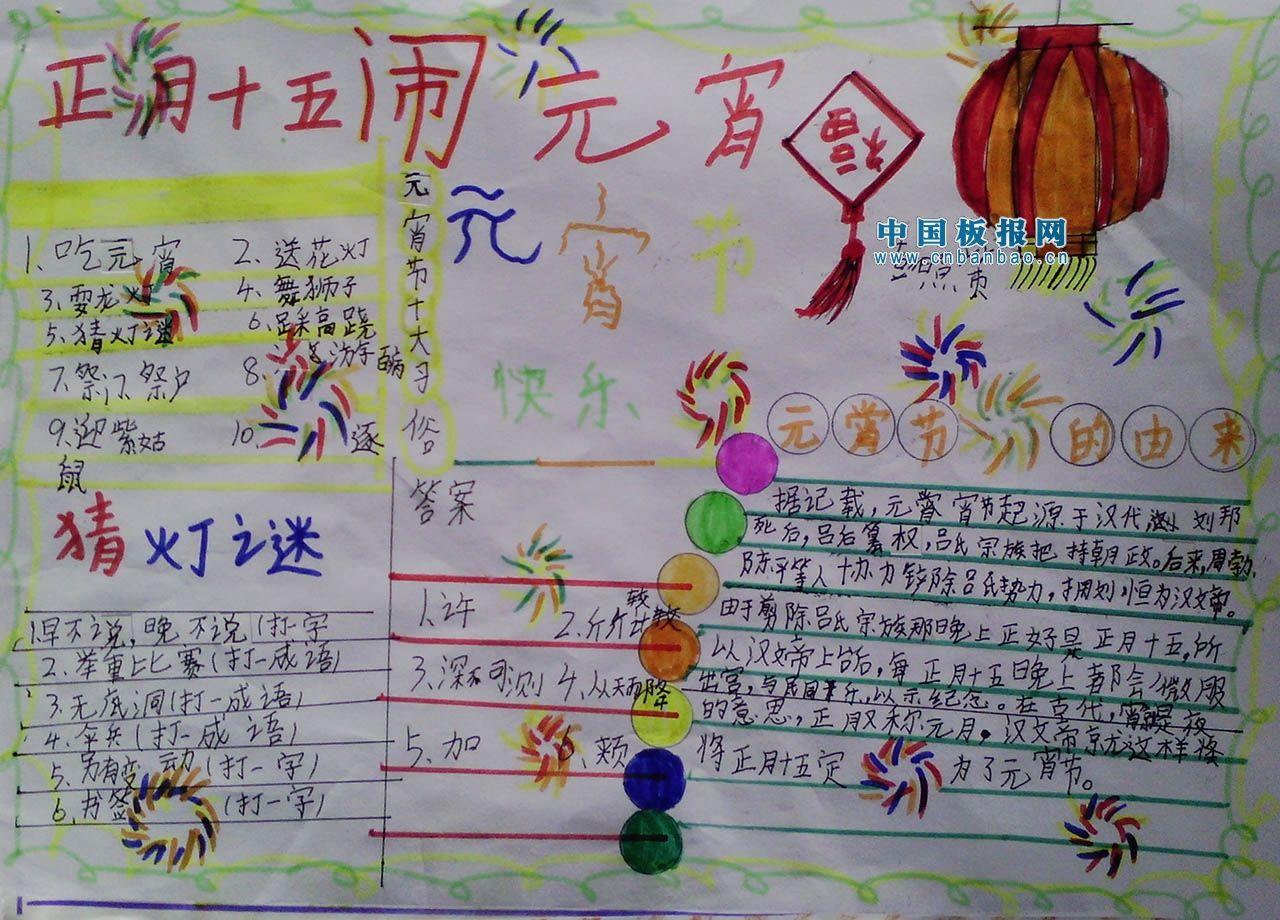 正月十五闹元宵
福
中国板报网
www.cnbanbao.cn
元宵节
快乐
元宵节十大习俗
1、吃元宵 2、送花灯
3、耍龙灯 4、舞狮子
5、猜灯谜 6、踩高跷
7、祭门、祭户 8、百病
9、迎紫姑 10、逐
鼠
猜灯之谜
1、早不说,晚不说(打一字
2、举重比赛(打一成语)
3、无底洞(打一成语)
4、伞兵(打一成语)
5、另有变动(打一字)
6、书签(打一字)
答案
1、许 2、斤斤计较
3、深不可测 4、从天而降
5、加 6、颊
元宵节的由来
据记载,元宵节起源于汉代 刘邦
死后,吕后篡权,吕氏宗族把持朝政。后来,周勃、
陈平等人协力铲除吕氏势力,拥刘恒为汉文帝。
由于剪除吕氏宗族那晚上正好是正月十五,所
以汉文帝上台后,每正月十五日晚上都会微服
出宫,与民同乐,以示纪念。在古代,宵是夜
的意思,正月又称元月。汉文帝就这样将
将正月十五定为了元宵节。